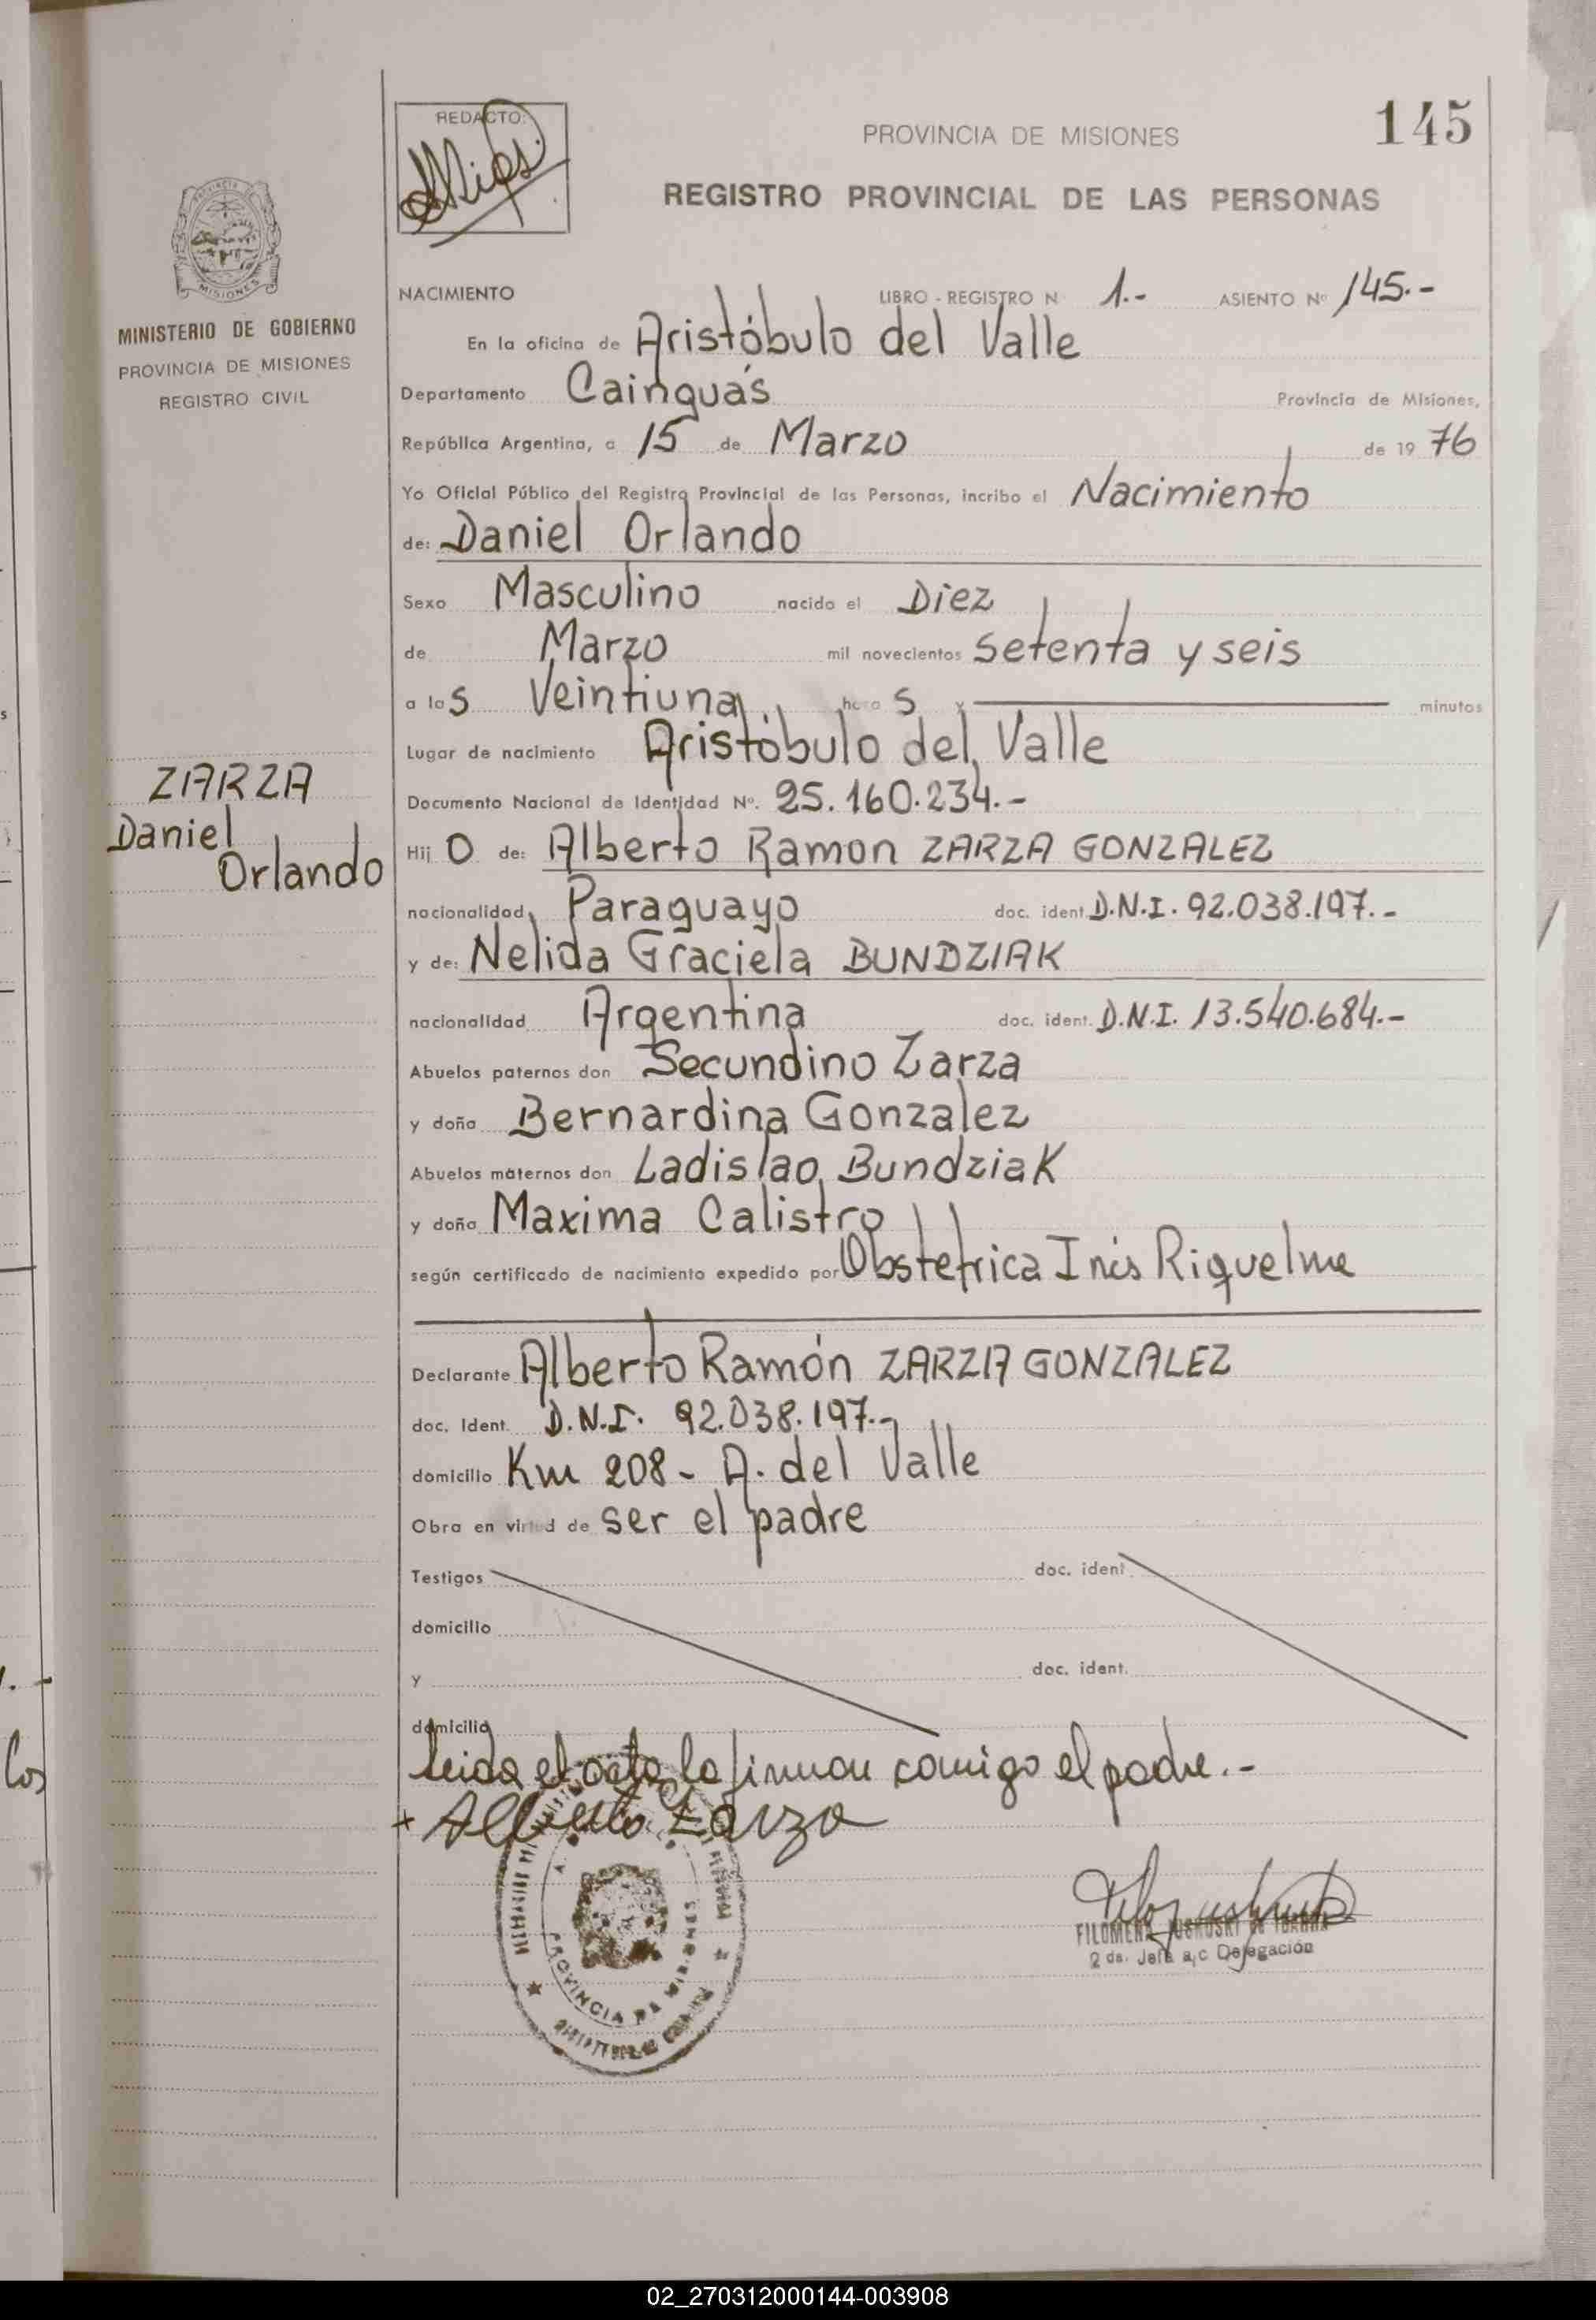 145
REDACTO:
PROVINCIA DE MISIONES
REGISTRO PROVINCIAL DE LAS PERSONAS
MISIONES
MINISTERIO DE GOBIERNO
PROVINCIA DE MISIONES
REGISTRO CIVIL
NACIMIENTO LIBRO - REGISTRO N 1.- ASIENTO Nº 145.-
En la oficina de Aristóbulo del Valle
Departamento Cainguás Provincia de Misiones,
República Argentina, a 15 de Marzo de 1976
Yo Oficial Público del Registro Provincial de las Personas, incribo el Nacimiento
de: Daniel Orlando
Sexo Masculino nacido el Diez
de Marzo mil novecientos setenta y seis
a las Veintiuna horas y minutos
Lugar de nacimiento Aristóbulo del Valle
ZARZA
Daniel
Orlando
Documento Nacional de Identidad Nº. 25.160.234.-
Hijo de: Alberto Ramon ZARZA GONZALEZ
nacionalidad Paraguayo doc. ident. D.N.I. 92.038.197.-
y de: Nelida Graciela BUNDZIAK
nacionalidad Argentina doc. ident. D.N.I. 13.540.684.-
Abuelos paternos don Secundino Zarza
y doña Bernardina Gonzalez
Abuelos maternos don Ladislao Bundziak
y doña Maxima Calistro
según certificado de nacimiento expedido por Obstetrica Inés Riquelme
Declarante Alberto Ramón ZARZA GONZALEZ
doc. Ident. D.N.I. 92.038.197.-
domicilio Km 208 - A. del Valle
Obra en virtud de ser el padre
Testigos doc. ident.
domicilio
y doc. ident.
domicilio
leida el acta la firman comigo el padre.-
+ Alberto Zarza
PROVINCIA DE MISIONES
FILOMENA
2 da. Jefa a/c Delegación
los
02_270312000144-003908